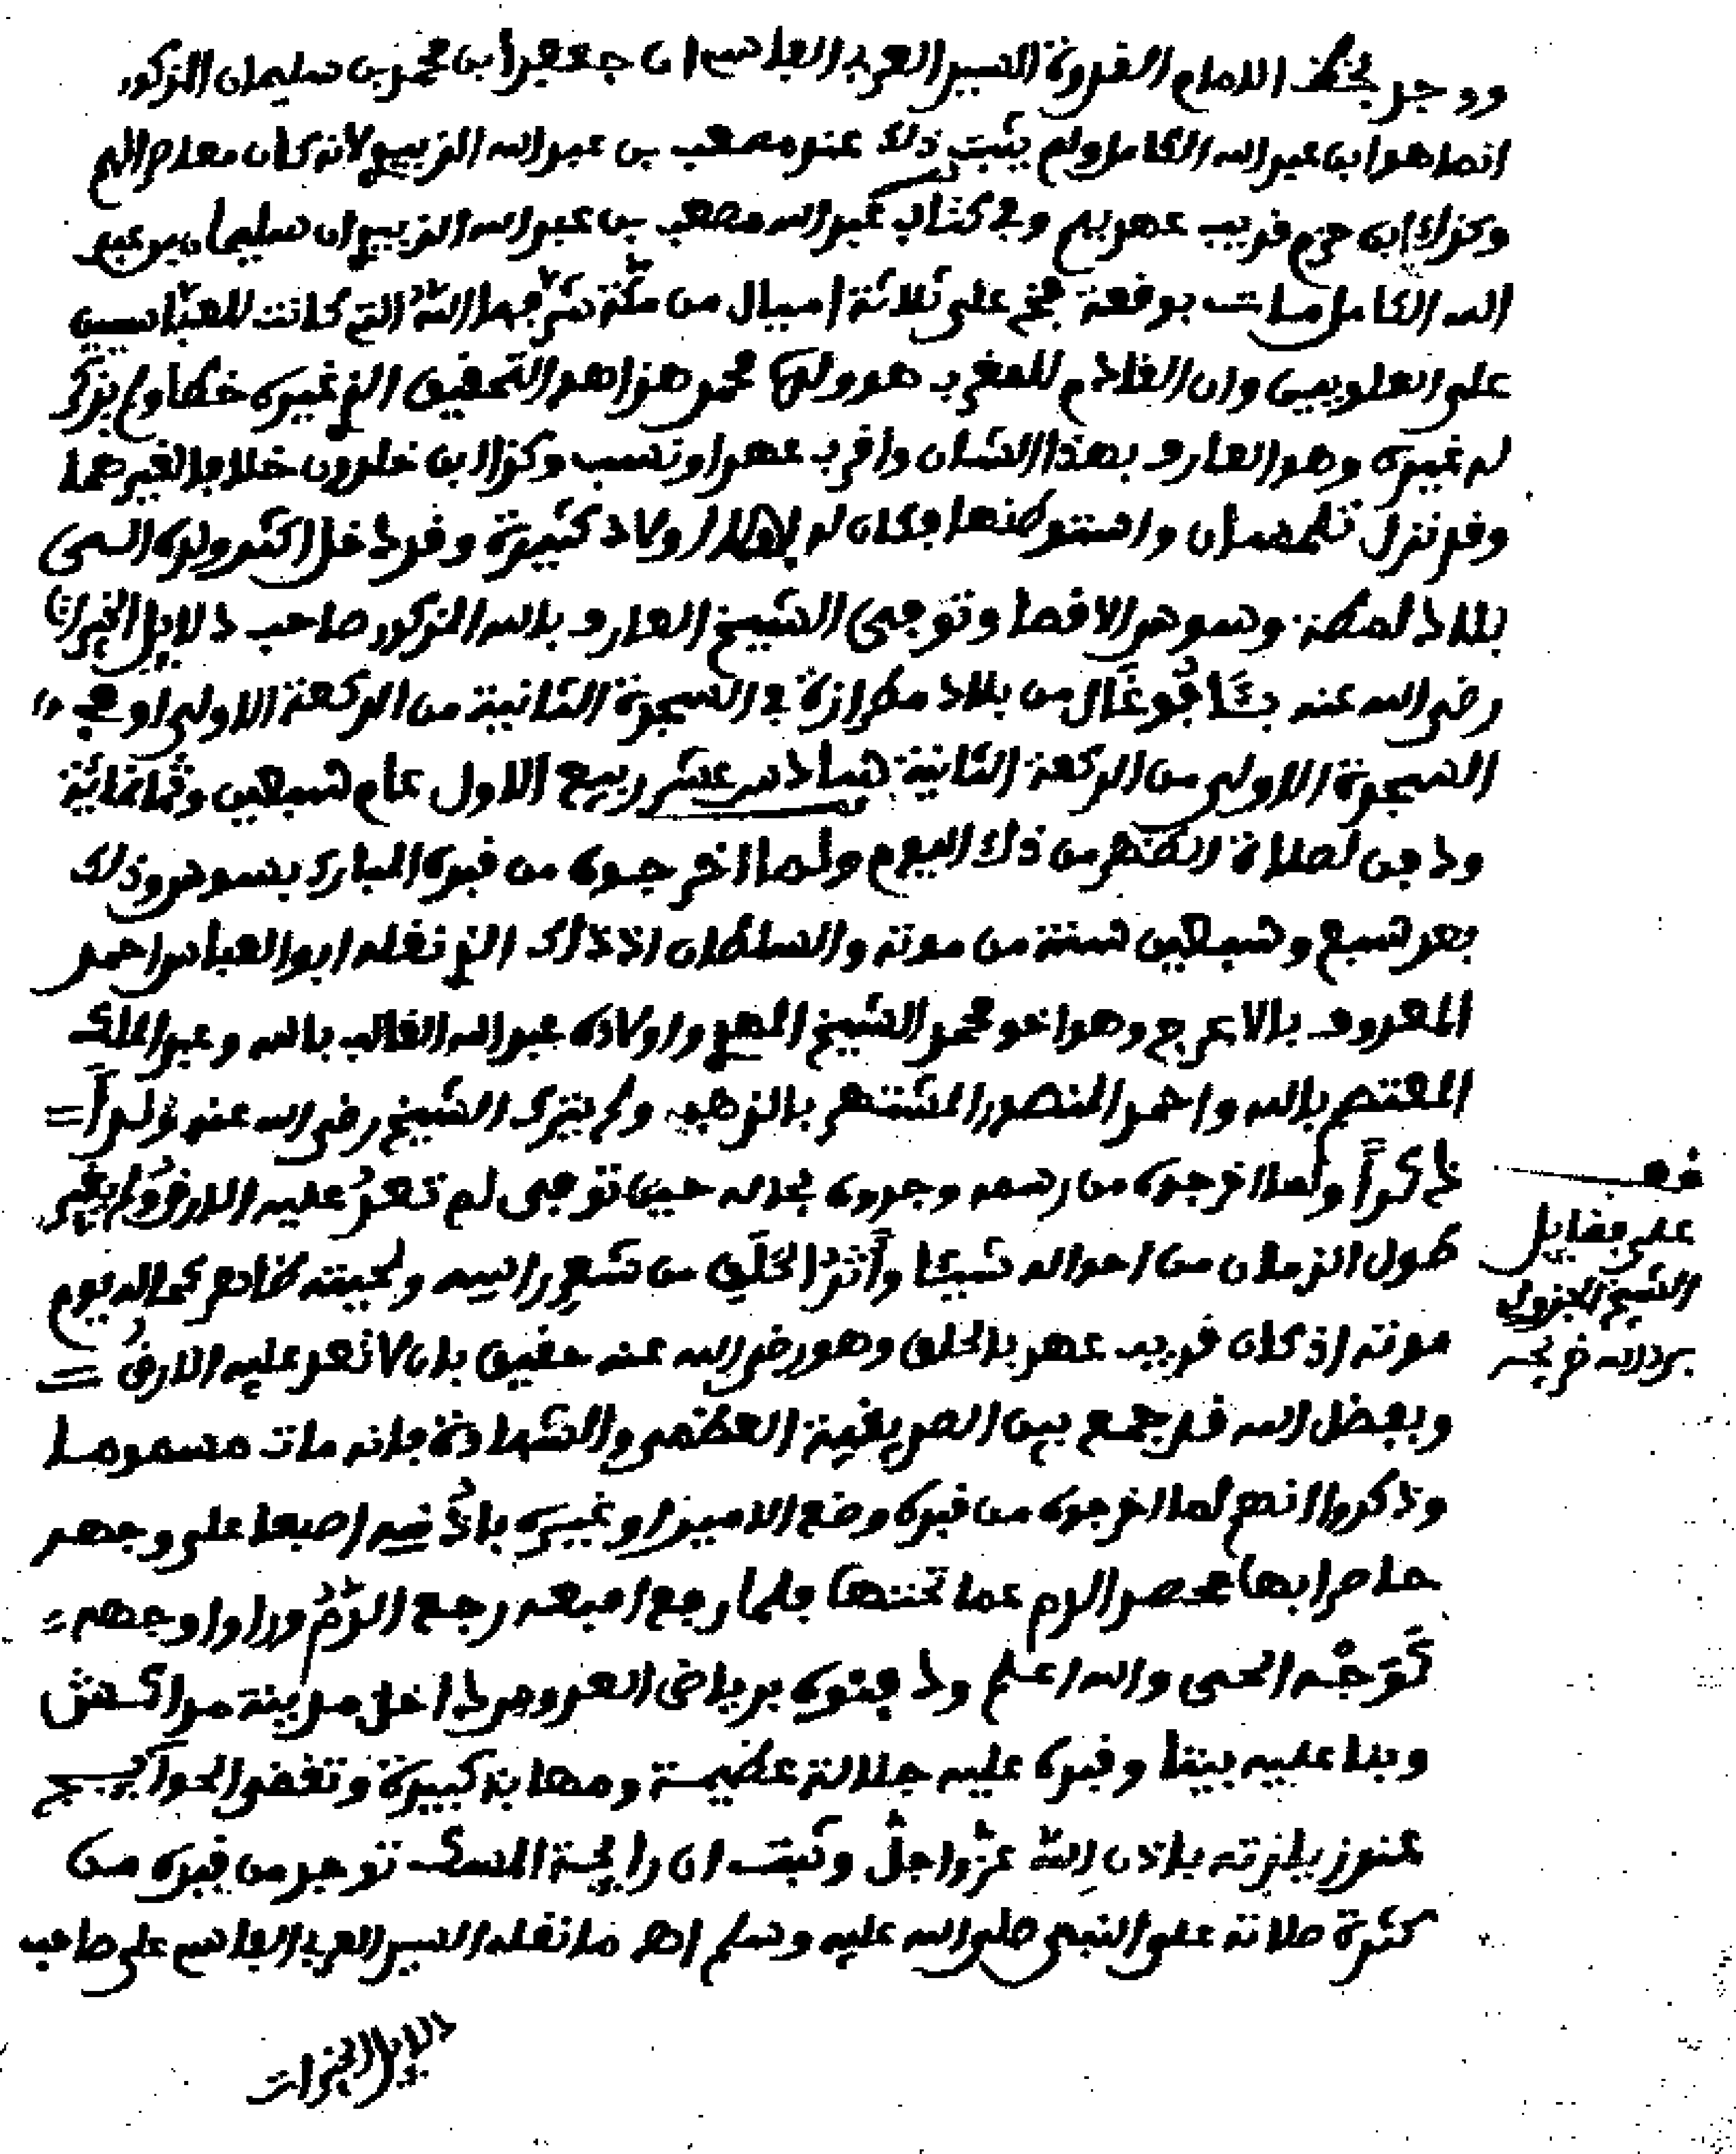 ووجد بخط الامام القدوة السيد العربي الفاسي ان جعفرا بن محمد بن سليمان المذكور
انما هو ابن عبد الله الكامل ولم يثبت ذلك عند مصعب بن عبد الله الزبيري لانه كان معاصرا لهم
وكذلك ابن حزم قريب عهد بهم وفي كتاب عبد الله مصعب بن عبد الله الزبيري ان سليمان بن عبد
الله الكامل مات بوقعة فخ على ثلاثة اميال من مكة شرفها الله التي كانت للعباسيين
على العلويين وان القادم للمغرب هو ولده محمد هذا هو التحقيق الذي غيره خطا ولم يذكر
له غيره وهو العارف بهذا الشان واقرب عهدا ونسب وكذا ابن خلدون خلافا لغيرهما
وقد نزل تلمسان واستوطنها فكان له اولاد كثيرة وقد دخل اكثر ولده السمى
بلاد لمطة وسوس الاقصا وتوفي الشيخ العارف بالله المذكور صاحب دلايل الخيرات
رضي الله عنه بتافوغال من بلاد مطرازة في السجدة الثانية من الركعة الاولى او في
السجدة الاولى من الركعة الثانية سادس عشر ربيع الاول عام سبعين وثمانمائة
ودفن لصلاة الظهر من ذلك اليوم ولما اخرجوه من قبره المبارك بسوس وذلك
بعد سبع وسبعين سنة من موته والسلطان اذذاك الذي نقله ابو العباس احمد
المعروف بالاعرج وهو اخو محمد الشيخ المهدي واولاده عبد الله الغالب بالله وعبد الملك
المعتصم بالله واحمد المنصور المشتهر بالذهبي ولم يترك الشيخ رضي الله عنه ولدا =
ذكرا ولما اخرجوه من رمسه وجدوه بحاله حين توفي لم تعد عليه الارض ولم يغير
طول الزمان من احواله شيئا واثر الحلق من شعر راسه ولحيته ظاهر كحاله يوم
موته اذ كان قريب عهد بالحلق وهو رضي الله عنه حقيق بان لا تعد عليه الارض =
وبفضل الله قد جمع بين الصديقية العظمى والشهادة فانه مات مسموما
وذكروا انهم لما اخرجوه من قبره وضع الامير او غيره باذنه اصبعا على وجهه
حاصرا بها فحصر الدم عما تحتها فلما رفع اصبعه رجع الدم وراوا وجهه =
كوجه الحي والله اعلم ودفنوه برياض العروس داخل مدينة مراكش
وبنا عليه بيتا وقبره عليه جلالة عظيمة ومهابة كبيرة وتقضى الحوايج
عند زيارته باذن الله عز وجل وثبت ان رايحة المسك توجد من قبره من
كثرة صلاته على النبي صلى الله عليه وسلم اهـ ما نقله السيد العربي الفاسي على صاحب
دلايل الخيرات
قف
على فضايل
الشيخ الجزولي
برد الله ضريحه